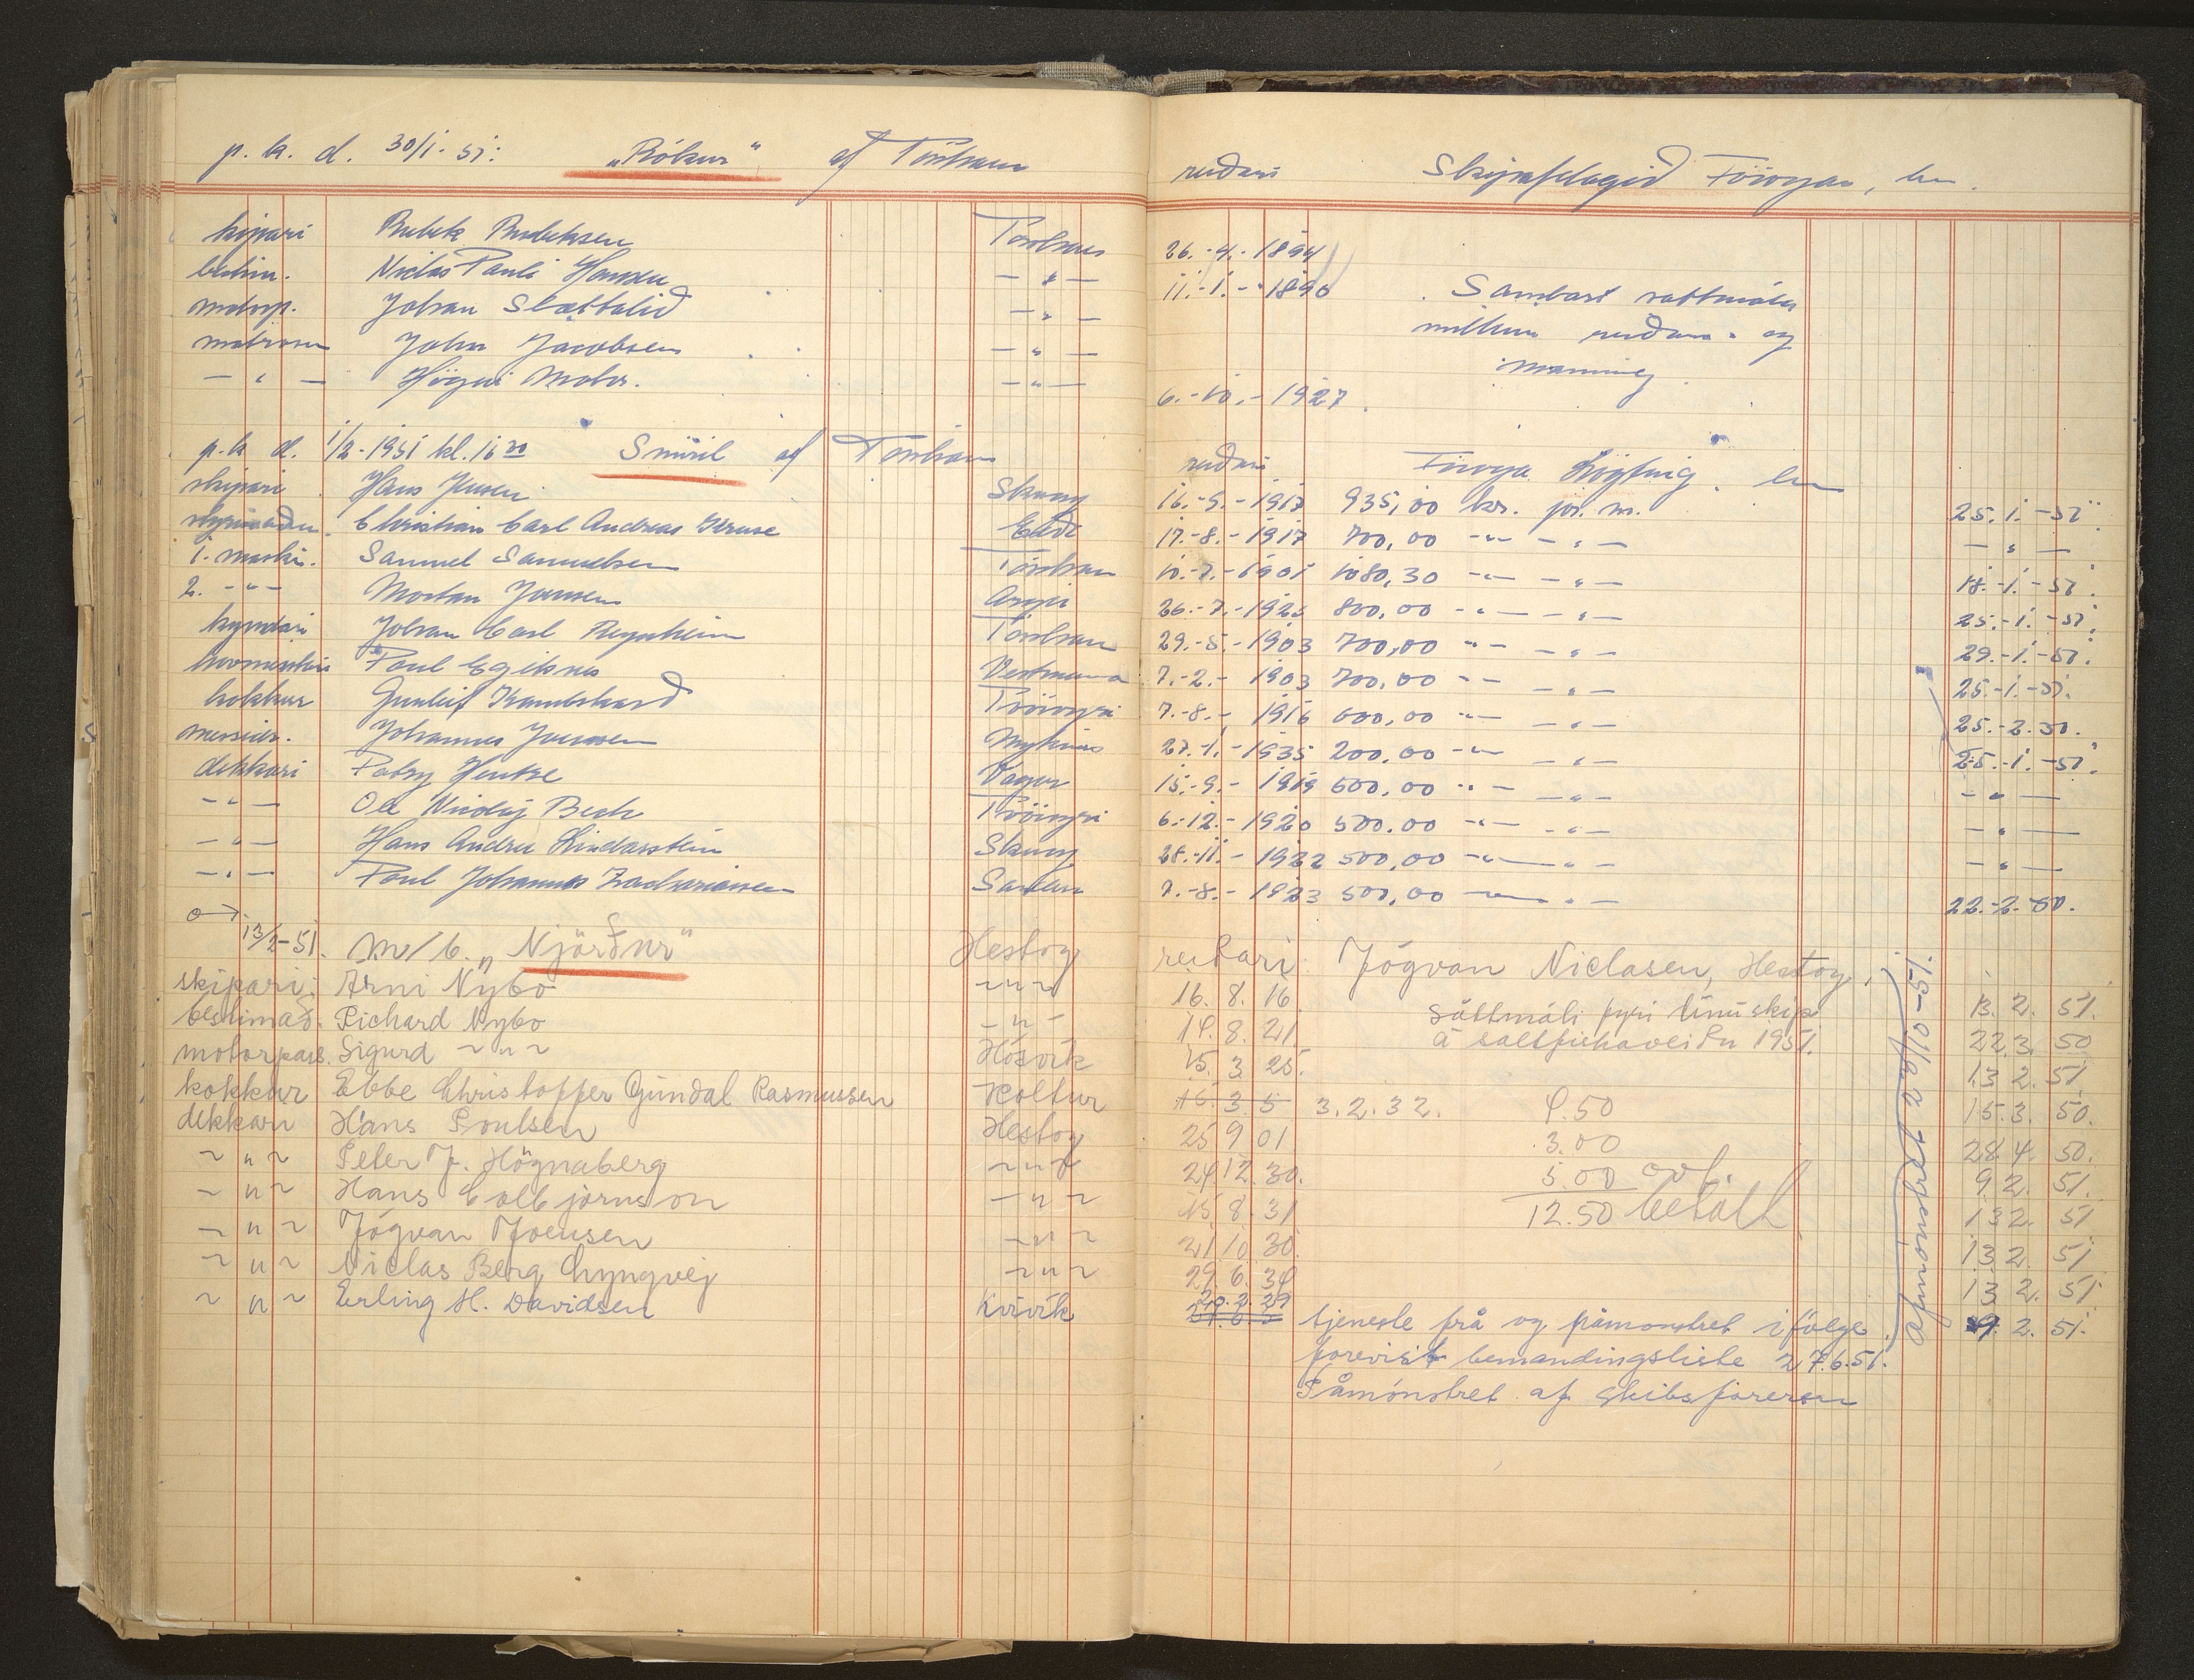 p. k. d. 30/1-51: "Rókur" af Tórshavn reiðari Skipafelagið Föroyar, hav.
skipari Rubek Rubeksen Tórshavn 26.-4.-1894
bestim. Niclas Pauli Hansen — " — 11.-1.-1890 Sambært sáttmála
motorp. Johan Slættalið — " — millum reiðara- og
matrosur John Jacobsen — " — manning
— " — Högni Mohr. — " — 6.-10.-1927.
p. k d. 1/2-1951 kl. 16 30 Smiril af Tórshavn reiðari Föroya Lögting. hav
skipari Hans Jensen Skuvoy 16.-9.-1917 935,00 kr. pr. m. 25.-1.-51.
stýrimaður Christian Carl Andreas Kruse Eiði 17.-8.-1917 700,00 — " — " — — " —
1. maskin. Samuel Samuelsen Tórshavn 10.-7.-1901 1080,30 — " — " — 18.-1.-51.
2. — " — Mortan Joensen Argir 26.-7.-1925 800,00 — " — " — 25.-1.-51.
kyndari Johan Carl Reynheim Tórshavn 29.-5.-1903 700,00 — " — " — 29.-1.-51.
hovmeistari Poul Egilsnes Vestmanna 7.-2.-1903 700,00 — " — " — 25.-1.-51.
kokkur Gunleif Kambskarð Tvöroyri 7.-8.-1916 600,00 — " — " — 25.-2.50.
messudr. Johannus Joensen Mykines 27.-1.-1935 200,00 — " — " — 25.-1.-51.
dekkari Patry Hentze Vágur 15.-9.-1919 600,00 — " — " — — " —
— " — Ole Nicolaj Bech Tvöroyri 6.-12.-1920 500.00 — " — " — — " —
— " — Hans Andrew Lindarstein Skuvoy 28.-11.-1922 500,00 — " — " — — " —
— " — Poul Johannes Zachariasen Sandur 7.-8.-1923 500,00 — " — " — 22.-2.-50.
13/2-51. m/b. "Njörður" Hestoy reiðari Jógvan Niclasen, Hestoy.
skipari: Arni Nybo ~ " ~ 16. 8. 16 sáttmáli fyri línuskip 13. 2. 51.
bestimað. Richard Nybo — " — 14. 8. 21. á saltfiskaveiðu 1951. 22 3. 50
motorpass. Sigurd ~ " ~ Hósvík 15. 3 25. 13 2. 51
kokkur Ebbe Christoffer Gundal Rasmussen Koltur 16. 3 5 3. 2. 32. 4.50 15. 3. 50.
dekkari Hans Poulsen Hestoy 25 9 01 3.00 28 4. 50.
~ " ~ Peter J. Högnaberg ~ " ~ 24 12. 30. 5.00 9 2. 51.
~ " ~ Hans Esbbjörnsson — " ~ 15. 8. 31 12.50 betalt 13 2. 51
~ " ~ Jógvan Joensen ~ " ~ 21 10 30. 13. 2. 51
~ " ~ Niclas Berg Lyngvej ~ " ~ 29. 6. 34 13 2. 51
~ " ~ Erling H. Davidsen Kvívík 20. 2. 29 2. 51.
tjeneste frå og påmonstret ifölge
forevist bemandingsliste 27.6.51.
Påmönstret af skibsföreren
afmönstret 29/10-51.